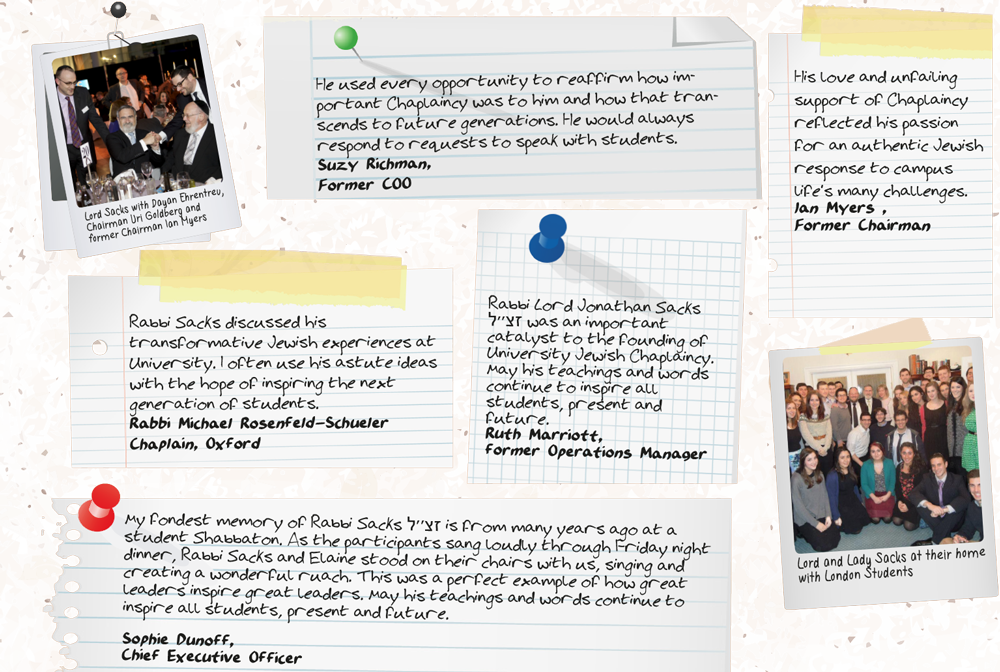 Lord Sacks with Dayan Ehrentreu,
Chairman Uri Goldberg and
former Chairman Ian Myers
He used every opportunity to reaffirm how im-
portant Chaplaincy was to him and how that tran-
scends to future generations. He would always
respond to requests to speak with students.
Suzy Richman,
Former COO
His love and unfailing
support of Chaplaincy
reflected his passion
for an authentic Jewish
response to campus
life's many challenges.
Ian Myers ,
Former Chairman
Rabbi Sacks discussed his
transformative Jewish experiences at
University. I often use his astute ideas
with the hope of inspiring the next
generation of students.
Rabbi Michael Rosenfeld-Schueler
Chaplain, Oxford
Rabbi Lord Jonathan Sacks
זצ״ל was an important
catalyst to the founding of
University Jewish Chaplaincy.
May his teachings and words
continue to inspire all
students, present and
future.
Ruth Marriott,
former Operations Manager
Lord and Lady Sacks at their home
with London Students
My fondest memory of Rabbi Sacks זצ״ל is from many years ago at a
student Shabbaton. As the participants sang loudly through Friday night
dinner, Rabbi Sacks and Elaine stood on their chairs with us, singing and
creating a wonderful ruach. This was a perfect example of how great
leaders inspire great leaders. May his teachings and words continue to
inspire all students, present and future.
Sophie Dunoff,
Chief Executive Officer